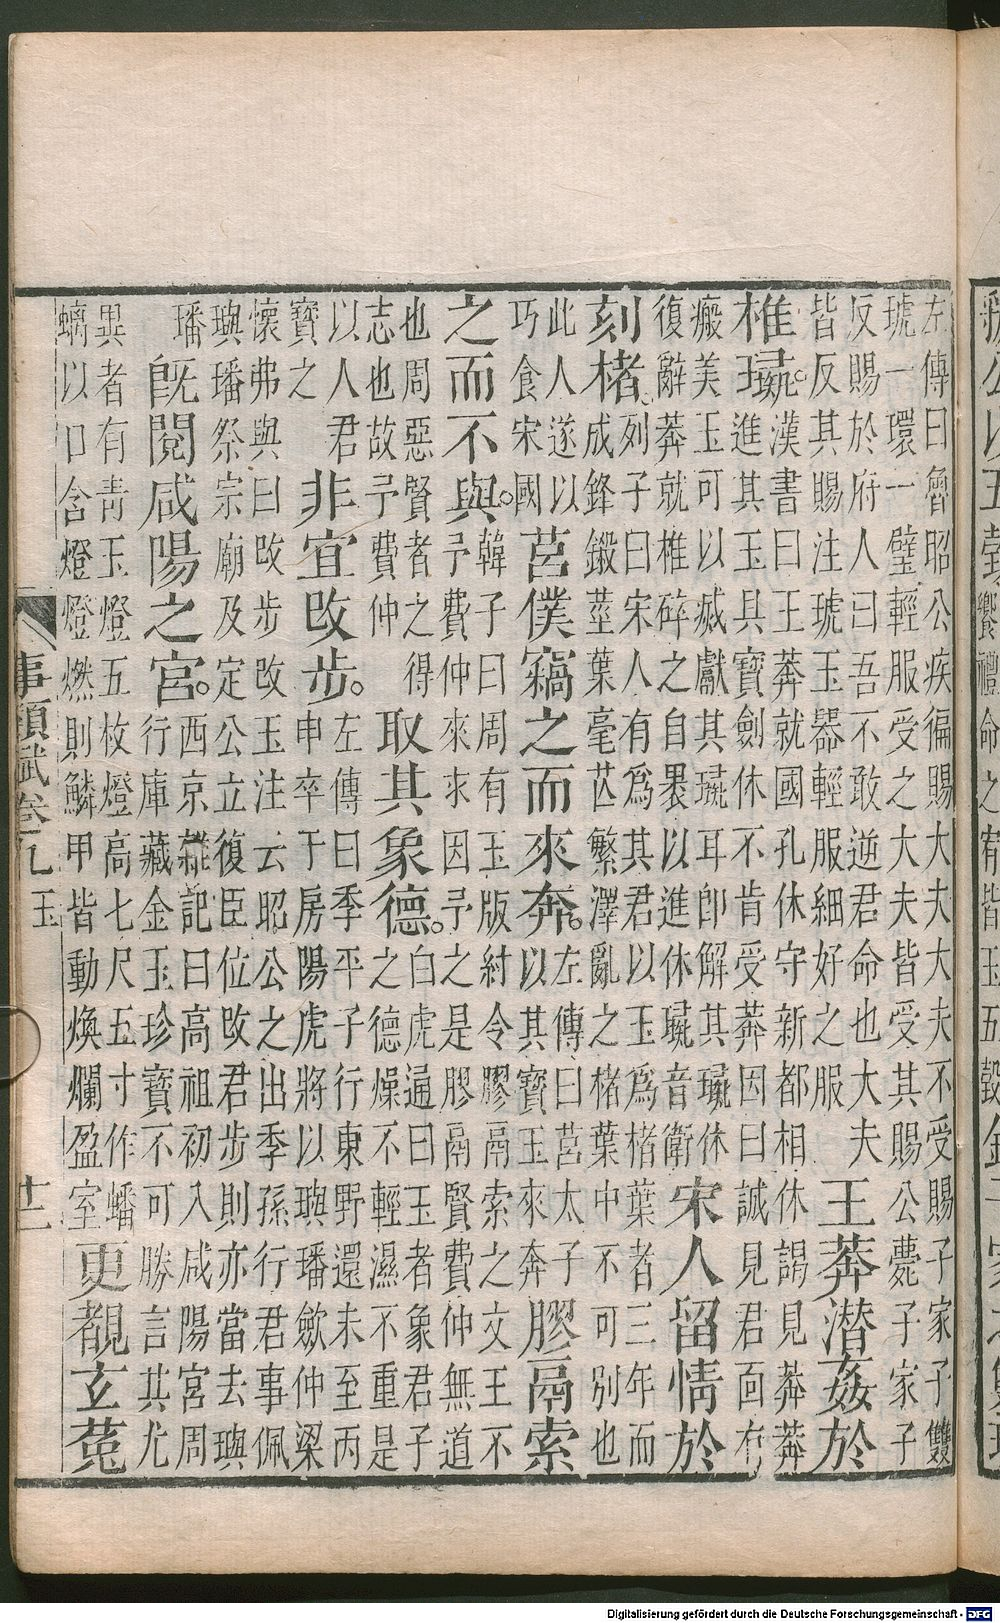 左傳曰魯昭公疾徧賜大夫大夫不受賜子家子雙
琥一環一璧輕服受之大夫皆受其賜公薨子家子
反賜於府人曰吾不敢逆君命也大夫
皆反其賜注琥玉器輕服細好之服
王莽潛姦於
椎瑑。
漢書曰王莽就國孔休守新都相休謁見莽莽
進其玉具寶劍休不肯受莽因曰誠見君面有
瘢美玉可以滅獻其瑑耳即解其瑑休
復辭莽就椎碎之自褁以進休瑑音衛
宋人留情於
刻楮。
列子曰宋人有爲其君以玉爲楮葉者三年而
成鋒鎩莖葉毫芒繁澤亂之楮葉中不可別也
此人遂以
巧食宋國
莒僕竊之而來奔。
左傳曰莒太子
以其寶玉來奔
膠鬲索
之而不與。
韓子曰周有玉版紂令膠鬲索之文王不
予費仲來求因予之是膠鬲賢費仲無道
也周惡賢者之得
志也故予費仲
取其象德。
白虎通曰玉者象君子
之德燥不輕濕不重是
以人君
寶之
非宜改步。
左傳曰季平子行東野還未至丙
申卒于房陽虎將以璵璠斂仲梁
懷弗與曰改步改玉注云昭公之出季孫行君事佩
璵璠祭宗廟及定公立復臣位改君步則亦當去璵
璠
既閱咸陽之宮。
西京雜記曰高祖初入咸陽宮周
行庫藏金玉珍寶不可勝言其尤
異者有青玉燈五枚燈高七尺五寸作蟠
螭以口含燈燈燃則鱗甲皆動煥爛盈室
更覩玄菟
事類賦卷九 玉 十二
Digitalisierung gefördert durch die Deutsche Forschungsgemeinschaft - DFG